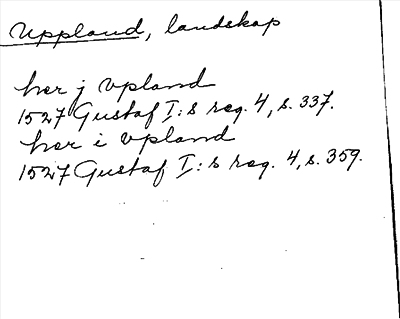 Uppland, landskap
her j Vpland
1527 Gustaf I:s reg. 4, s. 337.
her i vpland
1527 Gustaf I:s reg. 4, s. 359.